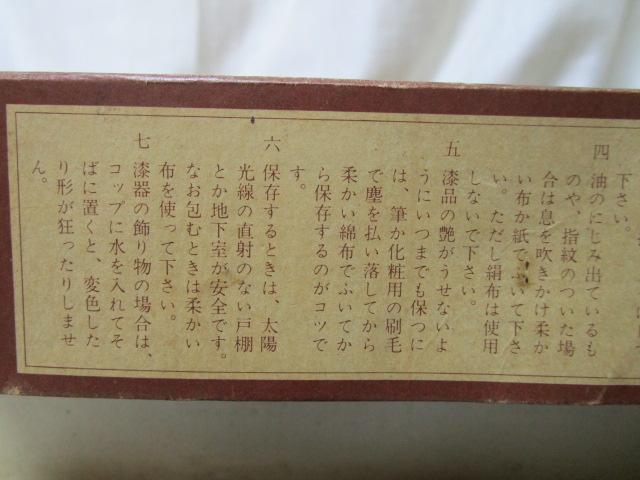 下さい。
四 油のにじみ出ているも
のや、指紋のついた場
合は息を吹きかけ柔か
い布か紙でふいて下さ
い。ただし絹布は使用
しないで下さい。
五 漆品の艶がうせないよ
うにいつまでも保つに
は、筆か化粧用の刷毛
で塵を払い落してから
柔かい綿布でふいてか
ら保存するのがコツで
す。
六 保存するときは、太陽
光線の直射のない戸棚
とか地下室が安全です。
なお包むときは柔かい
布を使って下さい。
七 漆器の飾り物の場合は、
コップに水を入れてそ
ばに置くと、変色した
り形が狂ったりしませ
ん。